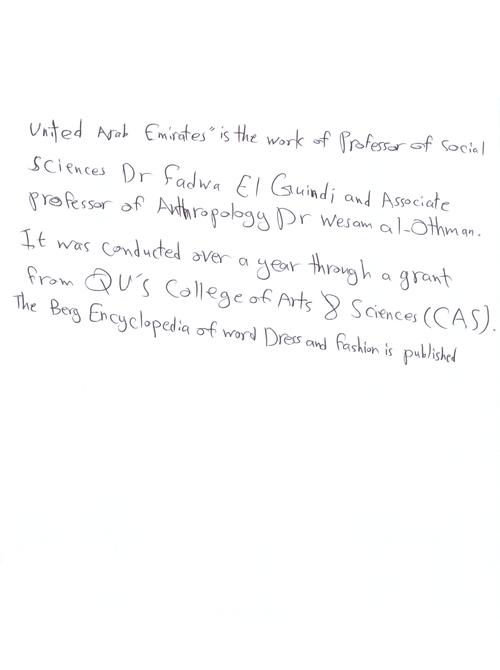 United Arab Emirates" is the work of Professor of Social
Sciences Dr Fadwa El Guindi and Associate
professor of Anthropology Dr Wesam al-Othman.
It was conducted over a year through a grant
from QU's College of Arts & Sciences (CAS).
The Berg Encyclopedia of word Dress and Fashion is published